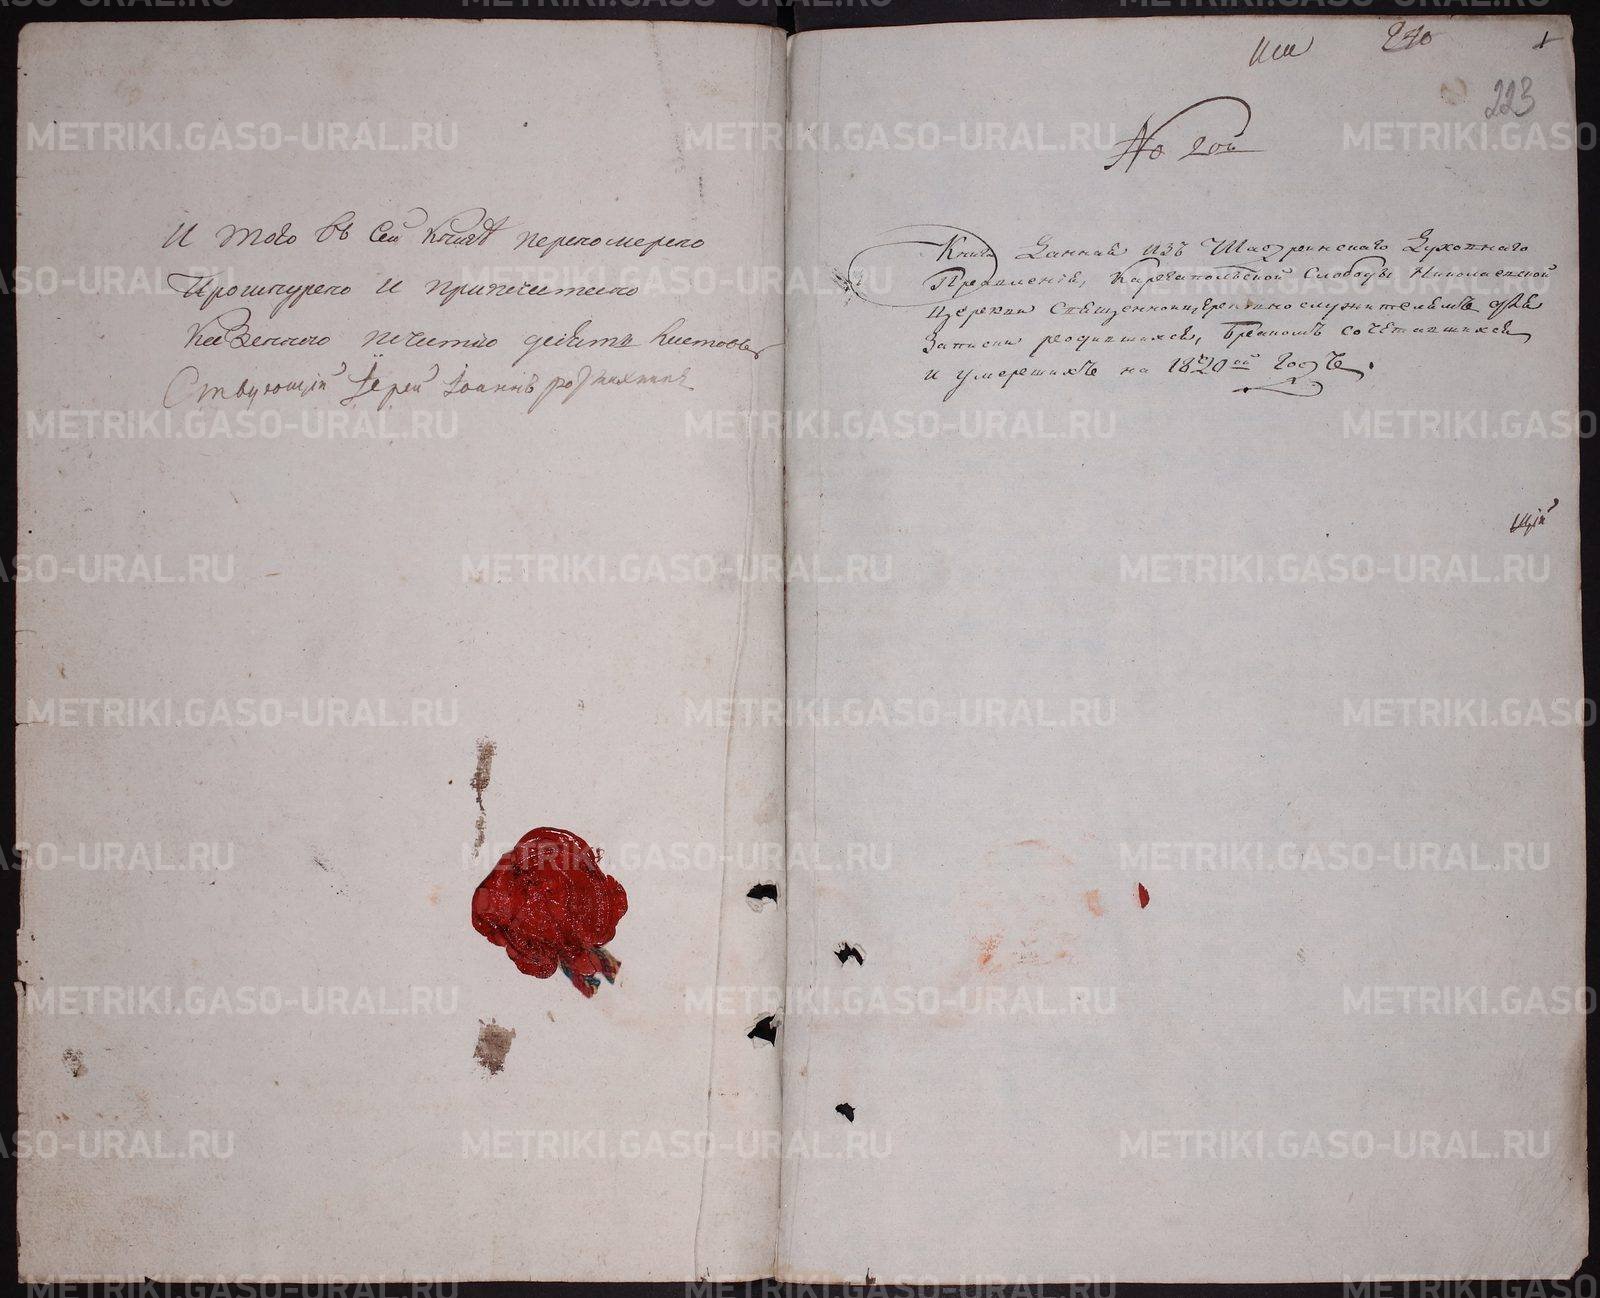 И того въ сей книгѣ перенумерено
Прошнурено и припечатано
Казенною печатью девять листовъ
Ствующій Іерей Іоаннъ
240
1
223
No 2ой
Книга Данная изъ Шадринскаго Духовнаго
Правленія, Каргапольской Слободы Николаевской
Церкви Священноцерковнослужителямъ для
Записки родившихся, бракомъ сочетавшихся
и умершихъ на 1820й годъ.
щій
METRIKI.GASO-URAL.RU